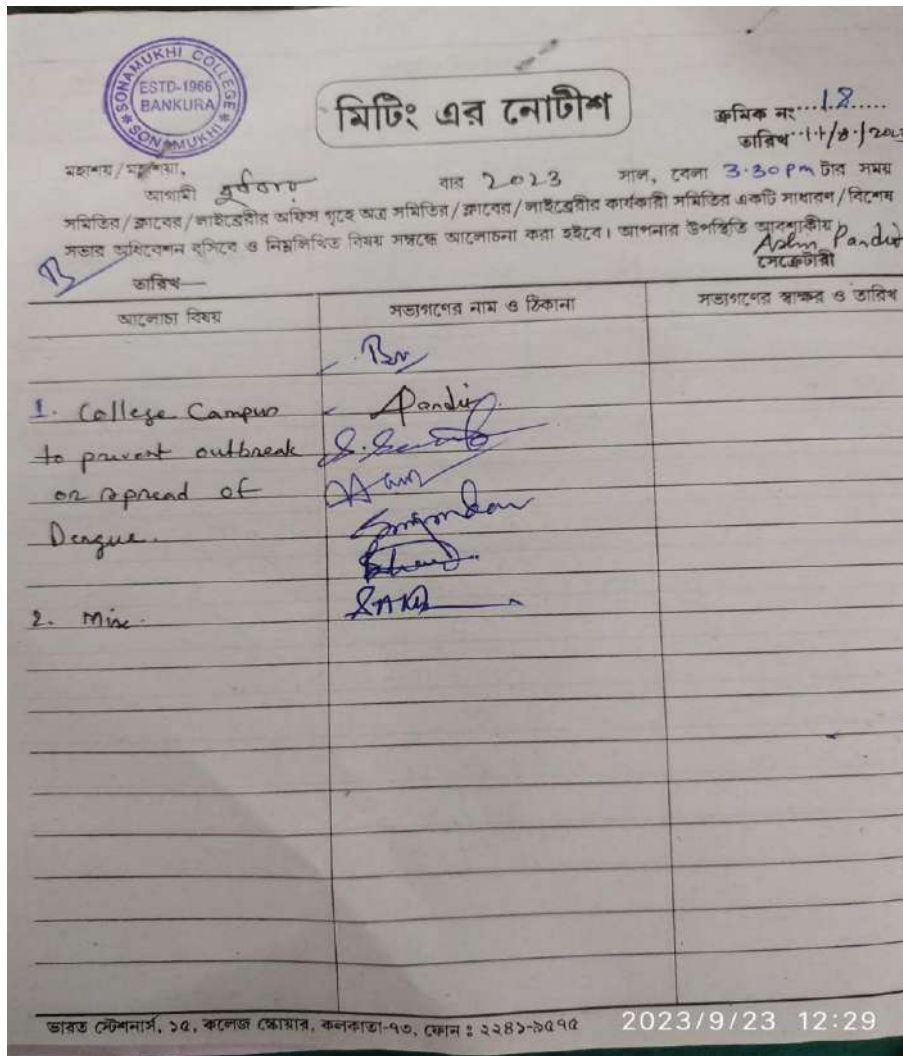 SONAMUKHI COLLEGE
ESTD-1966
BANKURA
SONAMUKHI
মিটিং এর নোটীশ
ক্রমিক নং 18
তারিখ /8/2023
মহাশয়/মহাশয়া,
আগামী বার 2023 সাল, বেলা 3.30 pm টার সময়
সমিতির/ক্লাবের/লাইব্রেরীর অফিস গৃহে অত্র সমিতির/ক্লাবের/লাইব্রেরীর কার্যকারী সমিতির একটি সাধারণ/বিশেষ
সভার অধিবেশন বসিবে ও নিম্নলিখিত বিষয় সম্বন্ধে আলোচনা করা হইবে। আপনার উপস্থিতি আবশ্যকীয়।
Pandit
সেক্রেটারী
তারিখ—
আলোচ্য বিষয়
সভ্যগণের নাম ও ঠিকানা
সভ্যগণের স্বাক্ষর ও তারিখ
1. College Campus
Pandit
to prevent outbreak
or spread of
Dengue.
2. Misc.
ভারত স্টেশনার্স, ১৫, কলেজ স্কোয়ার, কলকাতা-৭৩, ফোন : ২২৪১-৯৫৭৫
2023/9/23 12:29